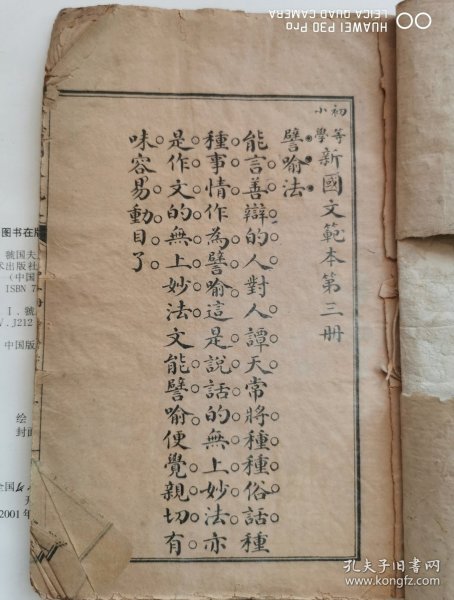 初等小學新國文範本第三册
譬喻法
能言善辯的人對人譚天常將種種俗話種
種事情作為譬喻這是說話的無上妙法亦
是作文的無上妙法文能譬喻便覺親切有
味容易動目了
HUAWEI P30 Pro
LEICA QUAD CAMERA
图书在版
虢国夫
术出版社
(中国
ISBN 7-
中国版
绘
封面
2001年
孔夫子旧书网